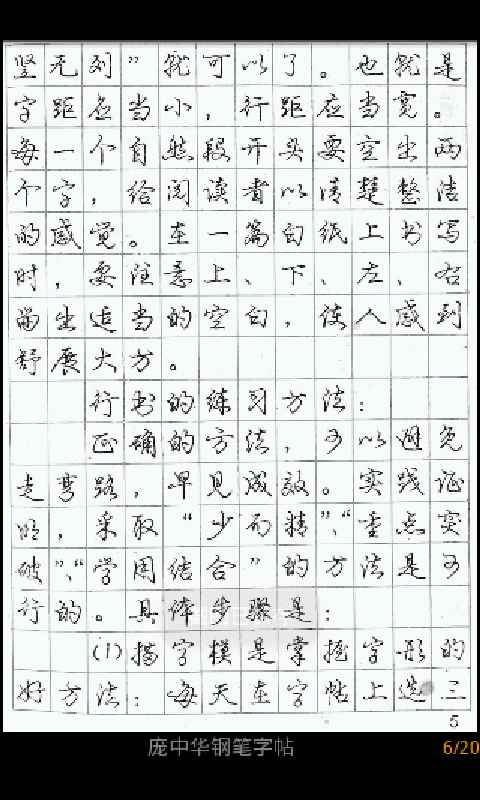 竖无列”就可以了。也就是
字距应当小，行距应当宽。
每一个自然段开头要空出两
个字，给阅读者以清楚整洁
的感觉。在一篇白纸上书写
时，要注意上、下、左、右
留出适当的空白，使人感到
舒展大方。
行书的练习方法：
正确的方法，可以避免
走弯路，早见成效。实践证
明，采取“少而精”、“重点突
破”、“学用结合”的方法是可
行的。具体步骤是：
(1)描字模是掌握字形的
好方法：每天在字帖上选三
5
庞中华钢笔字帖
6/20